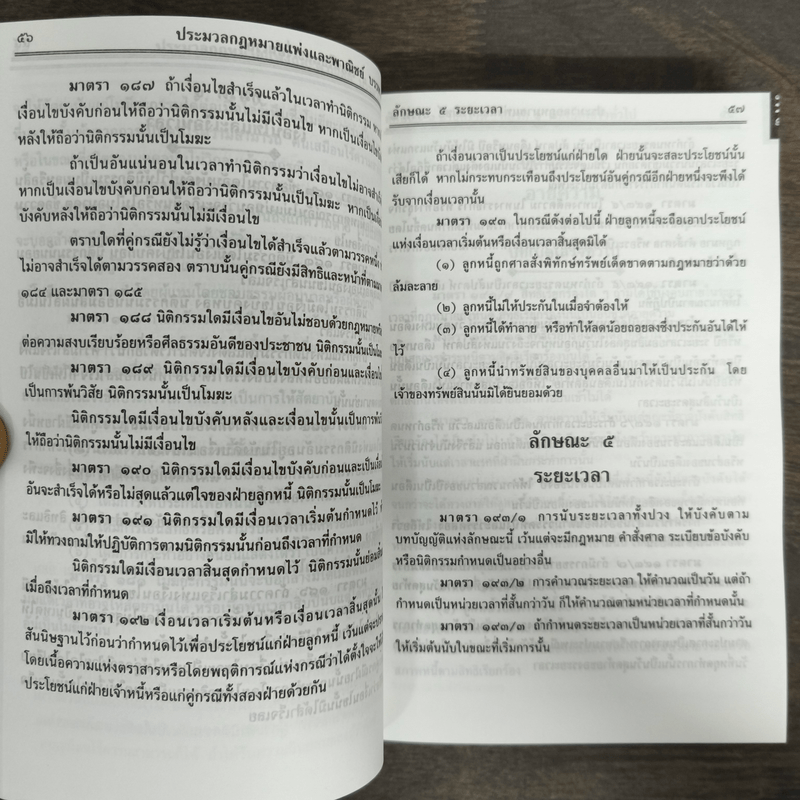 ๕๖
ประมวลกฎหมายแพ่งและพาณิชย์
มาตรา ๑๘๗ ถ้าเงื่อนไขสำเร็จแล้วในเวลาทำนิติกรรม
เงื่อนไขบังคับก่อนให้ถือว่านิติกรรมนั้นไม่มีเงื่อนไข หากเป็นเงื่อนไข
หลังให้ถือว่านิติกรรมนั้นเป็นโมฆะ
ถ้าเป็นอันแน่นอนในเวลาทำนิติกรรมว่าเงื่อนไขไม่อาจสำเร็จ
หากเป็นเงื่อนไขบังคับก่อนให้ถือว่านิติกรรมนั้นเป็นโมฆะ หากเป็น
บังคับหลังให้ถือว่านิติกรรมนั้นไม่มีเงื่อนไข
ตราบใดที่คู่กรณียังไม่รู้ว่าเงื่อนไขได้สำเร็จแล้วตามวรรคหนึ่ง
ไม่อาจสำเร็จได้ตามวรรคสอง ตราบนั้นคู่กรณียังมีสิทธิและหน้าที่
๑๘๔ และมาตรา ๑๘๕
มาตรา ๑๘๘ นิติกรรมใดมีเงื่อนไขอันไม่ชอบด้วยกฎหมาย
ต่อความสงบเรียบร้อยหรือศีลธรรมอันดีของประชาชน นิติกรรมนั้นเป็น
มาตรา ๑๘๙ นิติกรรมใดมีเงื่อนไขบังคับก่อนและเงื่อนไข
เป็นการพ้นวิสัย นิติกรรมนั้นเป็นโมฆะ
นิติกรรมใดมีเงื่อนไขบังคับหลังและเงื่อนไขนั้นเป็นการ
ให้ถือว่านิติกรรมนั้นไม่มีเงื่อนไข
มาตรา ๑๙๐ นิติกรรมใดมีเงื่อนไขบังคับก่อนและเป็น
อันจะสำเร็จได้หรือไม่สุดแล้วแต่ใจของฝ่ายลูกหนี้ นิติกรรมนั้นเป็นโมฆะ
มาตรา ๑๙๑ นิติกรรมใดมีเงื่อนเวลาเริ่มต้นกำหนดไว้
มิให้ทวงถามให้ปฏิบัติการตามนิติกรรมนั้นก่อนถึงเวลาที่กำหนด
นิติกรรมใดมีเงื่อนเวลาสิ้นสุดกำหนดไว้ นิติกรรมนั้นย่อม
เมื่อถึงเวลาที่กำหนด
มาตรา ๑๙๒ เงื่อนเวลาเริ่มต้นหรือเงื่อนเวลาสิ้นสุดนั้น
สันนิษฐานไว้ก่อนว่ากำหนดไว้เพื่อประโยชน์แก่ฝ่ายลูกหนี้ เว้นแต่จะ
โดยเนื้อความแห่งตราสารหรือโดยพฤติการณ์แห่งกรณีว่าได้ตั้งใจจะ
ประโยชน์แก่ฝ่ายเจ้าหนี้หรือแก่คู่กรณีทั้งสองฝ่ายด้วยกัน
ลักษณะ ๕ ระยะเวลา
๕๗
ถ้าเงื่อนเวลาเป็นประโยชน์แก่ฝ่ายใด ฝ่ายนั้นจะสละประโยชน์นั้น
เสียก็ได้ หากไม่กระทบกระเทือนถึงประโยชน์อันคู่กรณีอีกฝ่ายหนึ่งจะพึงได้
รับจากเงื่อนเวลานั้น
มาตรา ๑๙๓ ในกรณีดังต่อไปนี้ ฝ่ายลูกหนี้จะถือเอาประโยชน์
แห่งเงื่อนเวลาเริ่มต้นหรือเงื่อนเวลาสิ้นสุดมิได้
(๑) ลูกหนี้ถูกศาลสั่งพิทักษ์ทรัพย์เด็ดขาดตามกฎหมายว่าด้วย
ล้มละลาย
(๒) ลูกหนี้ไม่ให้ประกันในเมื่อจำต้องให้
(๓) ลูกหนี้ได้ทำลาย หรือทำให้ลดน้อยถอยลงซึ่งประกันอันได้ให้
ไว้
(๔) ลูกหนี้นำทรัพย์สินของบุคคลอื่นมาให้เป็นประกัน โดย
เจ้าของทรัพย์สินนั้นมิได้ยินยอมด้วย
ลักษณะ ๕
ระยะเวลา
มาตรา ๑๙๓/๑ การนับระยะเวลาทั้งปวง ให้บังคับตาม
บทบัญญัติแห่งลักษณะนี้ เว้นแต่จะมีกฎหมาย คำสั่งศาล ระเบียบข้อบังคับ
หรือนิติกรรมกำหนดเป็นอย่างอื่น
มาตรา ๑๙๓/๒ การคำนวณระยะเวลา ให้คำนวณเป็นวัน แต่ถ้า
กำหนดเป็นหน่วยเวลาที่สั้นกว่าวัน ก็ให้คำนวณตามหน่วยเวลาที่กำหนดนั้น
มาตรา ๑๙๓/๓ ถ้ากำหนดระยะเวลาเป็นหน่วยเวลาที่สั้นกว่าวัน
ให้เริ่มต้นนับในขณะที่เริ่มการนั้น